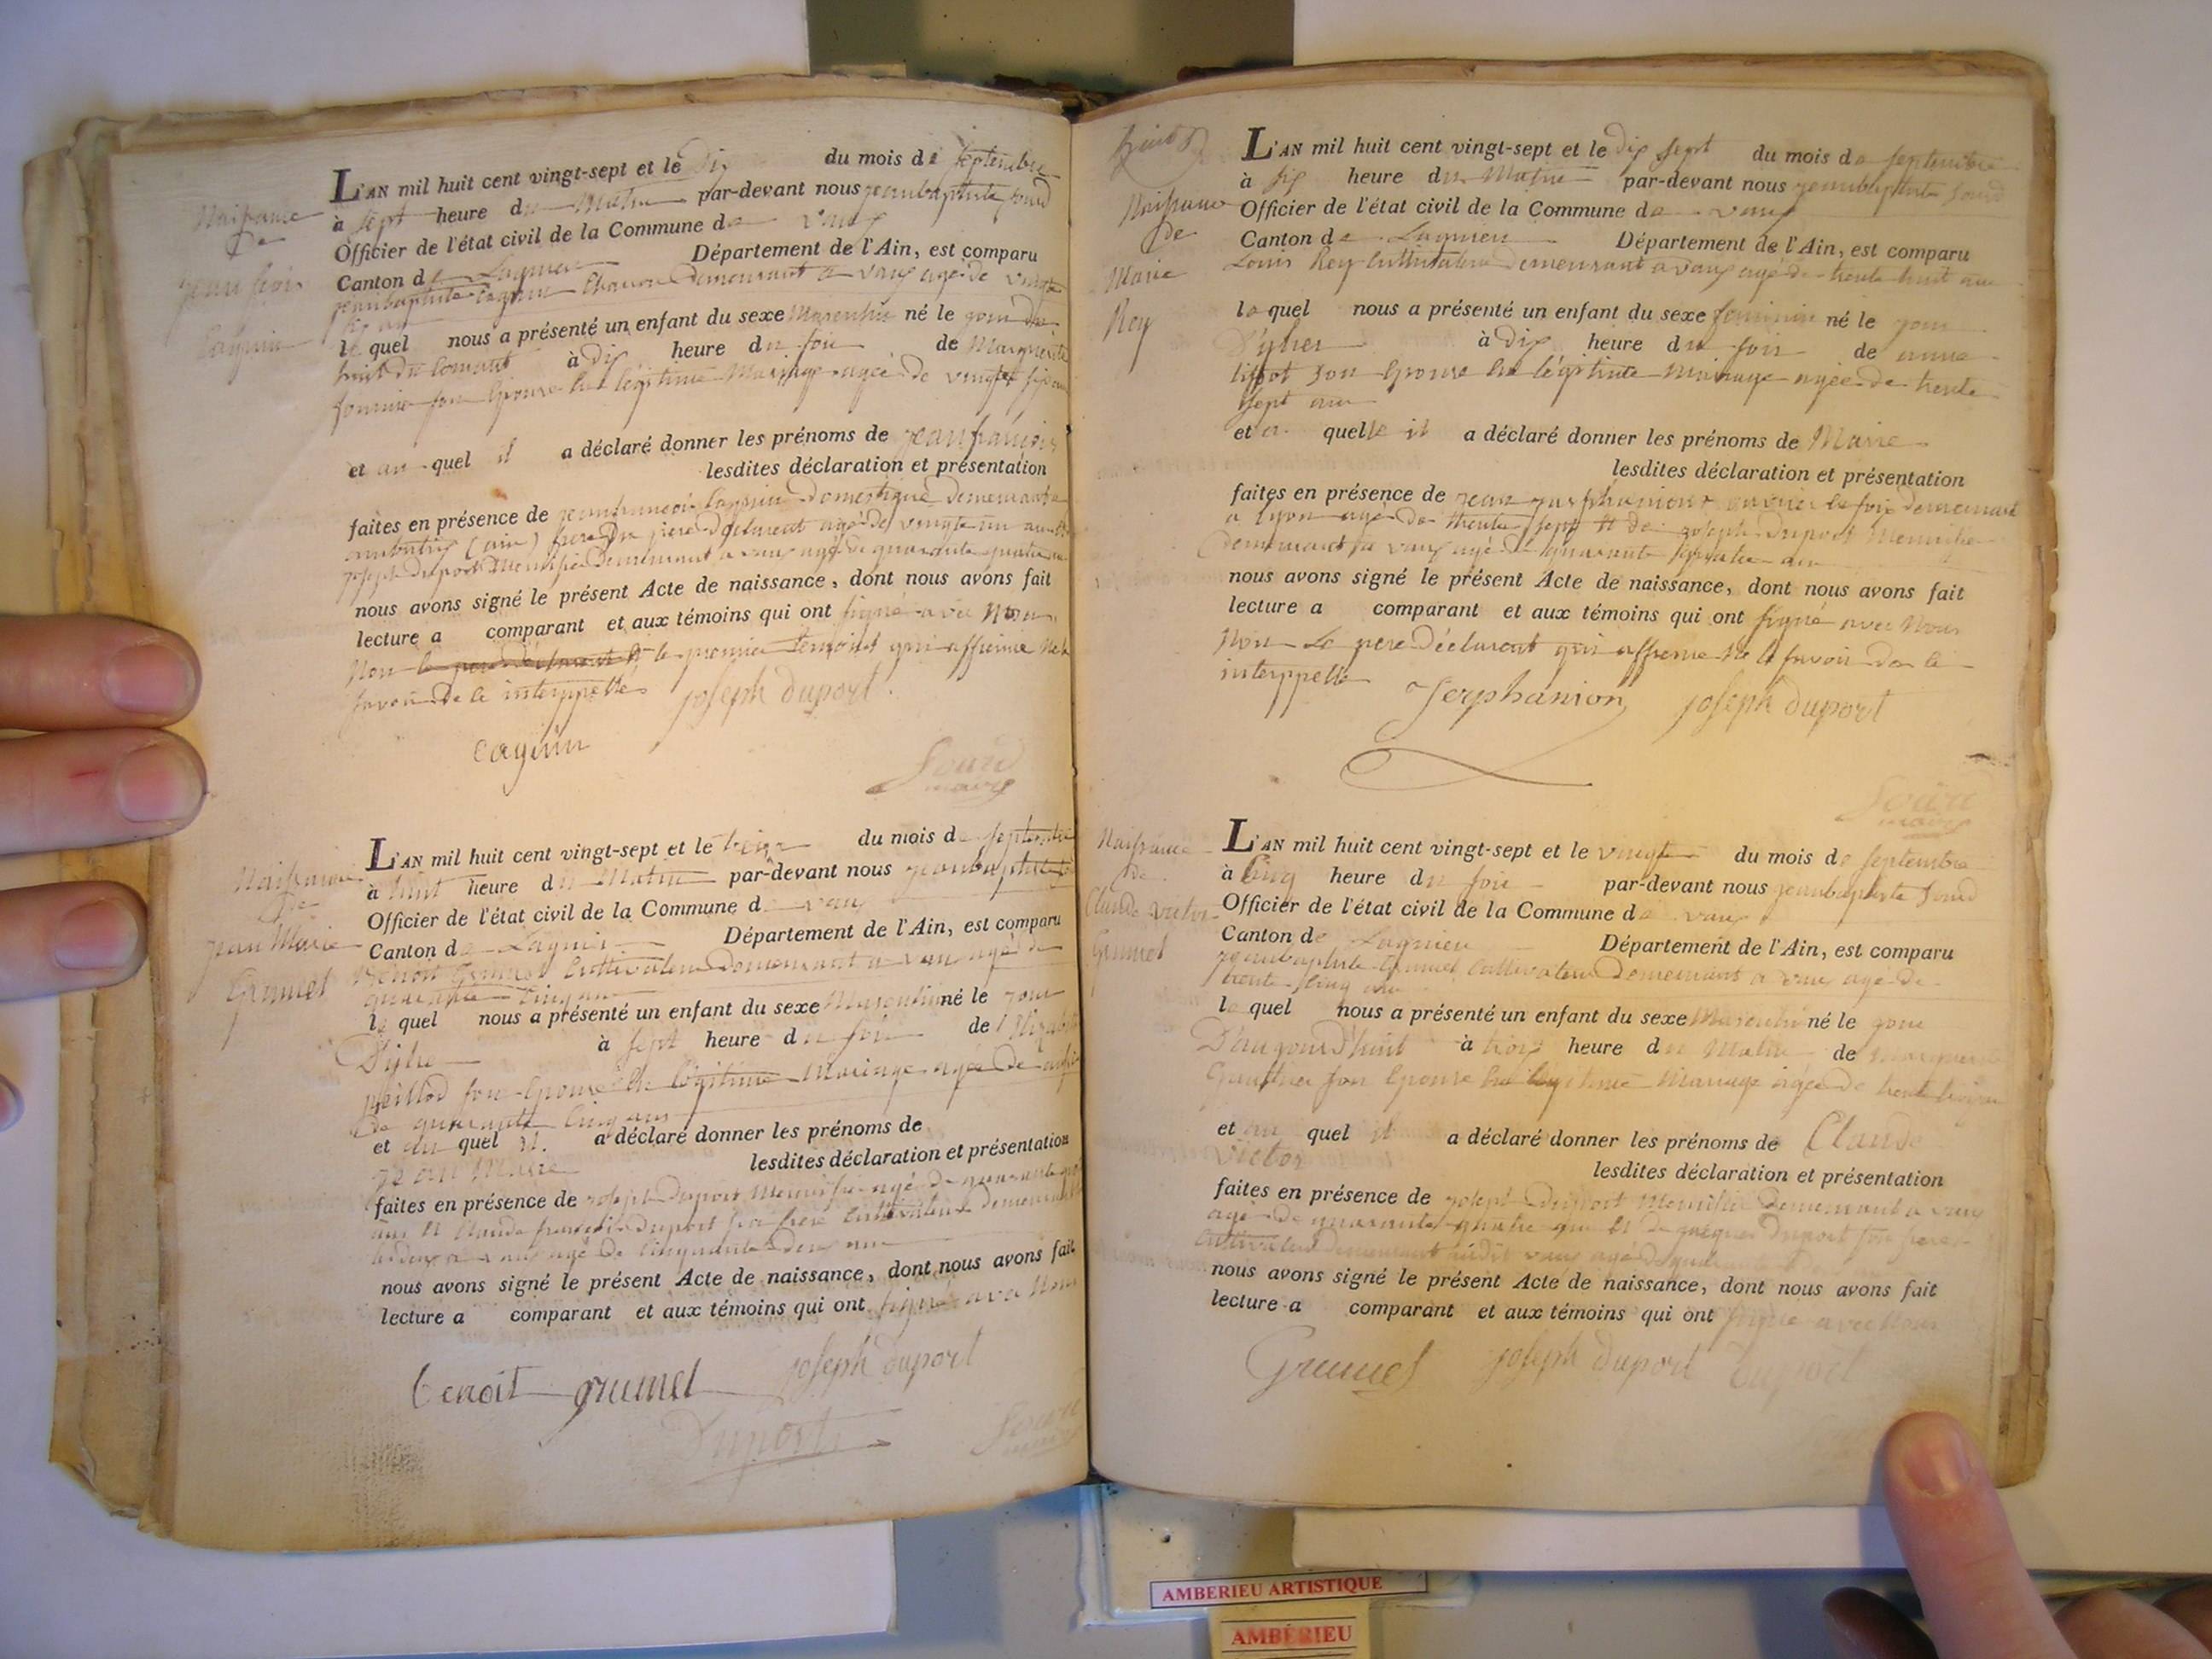 Naissance
de
jean frois
Cagnin
L'AN mil huit cent vingt-sept et le Dix du mois de septembre
à sept heure du Matin par-devant nous jeanbaptiste sourd
Officier de l'état civil de la Commune de vaux
Canton de Lagnieu Département de l'Ain, est comparu
jeanbaptiste Cagnin Charon Demeurant a vaux agé de vingt
six an
le quel nous a présenté un enfant du sexe Masculin né le jour du
huit du Courant à Dix heure du soir de Marguerite
son Epouse En légitime Mariage agée de vingt
et au quel il a déclaré donner les prénoms de jean françois
lesdites déclaration et présentation
faites en présence de jeanfrancois Cagnin Domestique Demeurant a
(ain) frere Du pere Déclarent agé de vingt un an et
joseph duport Menuisié Demeurant a vaux agé de quarante quatre an
nous avons signé le présent Acte de naissance, dont nous avons fait
lecture a comparant et aux témoins qui ont signé avec Nous
Non le pere déclarent et le premier temoins qui affirme ne le
savoir De ce interppellé joseph duport
cagnin
Sourd
maire
Naissance
de
jean Marie
Grumet
L'AN mil huit cent vingt-sept et le treize du mois de septembre
à huit heure du Matin par-devant nous jeanbaptiste
Officier de l'état civil de la Commune d vaux
Canton de Lagnieu Département de l'Ain, est comparu
Benoit Grumet Cultivateur Demeurant a vaux agé de
quarante Cinq an
le quel nous a présenté un enfant du sexe Masculin né le jour
D'yher à sept heure du soir de
peillod son Epouse En légitime Mariage agée De
De quarante Cinq ans
et au quel il a déclaré donner les prénoms de
jean Marie lesdites déclaration et présentation
faites en présence de joseph duport Menuisié agé de quarante
ans et Claude françois Duport son frere Cultivateur demeurant
a vaux agé de Cinquante deux an
nous avons signé le présent Acte de naissance, dont nous avons fait
lecture a comparant et aux témoins qui ont signé avec Nous
benoit grumet joseph duport
Duport
Sourd
maire
Naissance
de
Marie
Rey
L'AN mil huit cent vingt-sept et le dix sept du mois de septembre
à six heure du Matin par-devant nous jeanbaptiste sourd
Officier de l'état civil de la Commune de vaux
Canton de Lagnieu Département de l'Ain, est comparu
Louis Rey Cultivateur Demeurant a vaux agé de trente huit an
le quel nous a présenté un enfant du sexe feminin né le jour
D'yher à Dix heure du soir de anne
son Epouse En légitime Mariage agée de trente
sept an
et a quelle il a déclaré donner les prénoms de Marie
lesdites déclaration et présentation
faites en présence de jean ouvrier En soie Demeurant
a lyon agé de trente sept et de joseph Duport Menuisier
Demeurant a vaux agé de quarante quatre an
nous avons signé le présent Acte de naissance, dont nous avons fait
lecture a comparant et aux témoins qui ont signé avec Nous
Non Le pere Déclarent qui afferme ne le savoir De ce
interppellé
Jerphanion joseph duport
Sourd
maire
Naissance
de
Claude victor
Grumet
L'AN mil huit cent vingt-sept et le vingt du mois de septembre
à Cinq heure du soir par-devant nous jeanbaptiste sourd
Officier de l'état civil de la Commune de vaux
Canton de Lagnieu Département de l'Ain, est comparu
jeanbaptiste Grumet Cultivateur Demeurant a vaux agé de
trente Cinq an
le quel nous a présenté un enfant du sexe Masculin né le jour
D'aujourd'huit à trois heure du Matin de Marguerite
Gauthier son Epouse En légitime Mariage agée de
et au quel il a déclaré donner les prénoms de Claude
victor lesdites déclaration et présentation
faites en présence de joseph Duport Menuisié Demeurant a vaux
agé de quarante quatre an et de jacques Duport son frere
Cultivateur Demeurant audit vaux agé de
nous avons signé le présent Acte de naissance, dont nous avons fait
lecture a comparant et aux témoins qui ont signé avec Nous
Grumet joseph duport Duport
AMBERIEU ARTISTIQUE
AMBÉRIEU